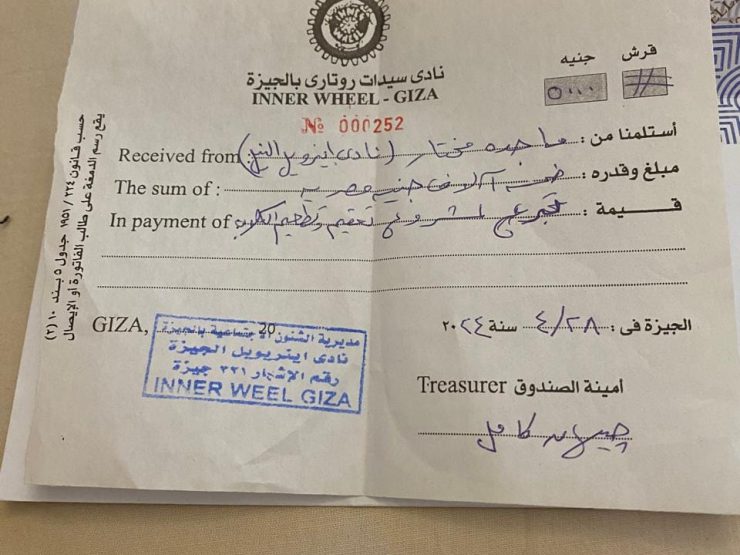 نادى سيدات روتارى بالجيزة
INNER WHEEL - GIZA
قرش جنيه
٥٠٠٠
№ 000252
أستلمنا من : ماجده مختار (نادى اينرويل النيل)
Received from :
مبلغ وقدره : خمسة آلاف جنيه مصرى
The sum of :
قـــيـــمة : تبرع لمشروع تعقيم وتطعيم الكلاب
In payment of
الجيزة فى : ٤/٢٨ سنة ٢٠٢٤
GIZA, 20
مديرية الشئون الاجتماعية بالجيزة
نادى اينرويل الجيزة
رقم الإشهار ٣٣١ جيزة
INNER WEEL GIZA
أمينة الصندوق Treasurer
كامل
يقع رسم الدمغة على طالب الفاتورة او الإيصال
حسب قانون ٢٢٤ / ١٩٥١ جدول ٥ بند ١٠ (٢)